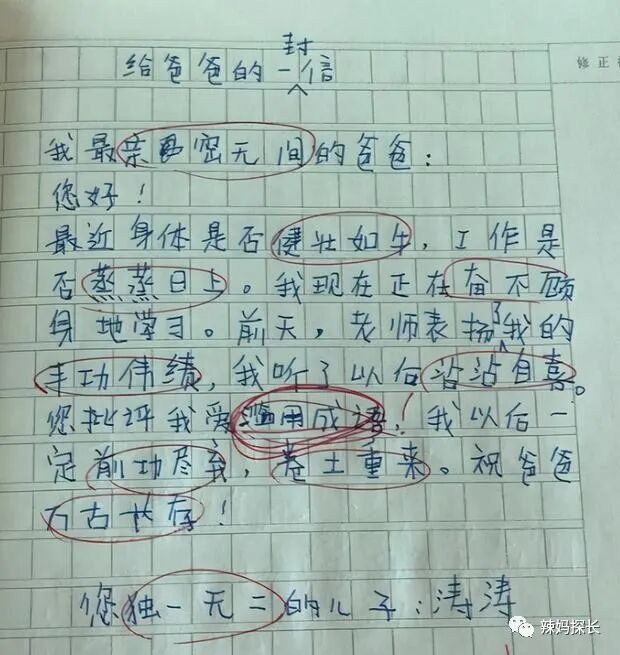 给爸爸的一封信
修正
我最亲密无间的爸爸：
您好！
最近身体是否健壮如牛，工作是
否蒸蒸日上。我现在正在奋不顾
身地学习。前天，老师表扬了我的
丰功伟绩，我听了以后沾沾自喜。
您批评我爱滥用成语！我以后一
定前功尽弃，卷土重来。祝爸爸
万古长存！
您独一无二的儿子：涛涛
辣妈探长